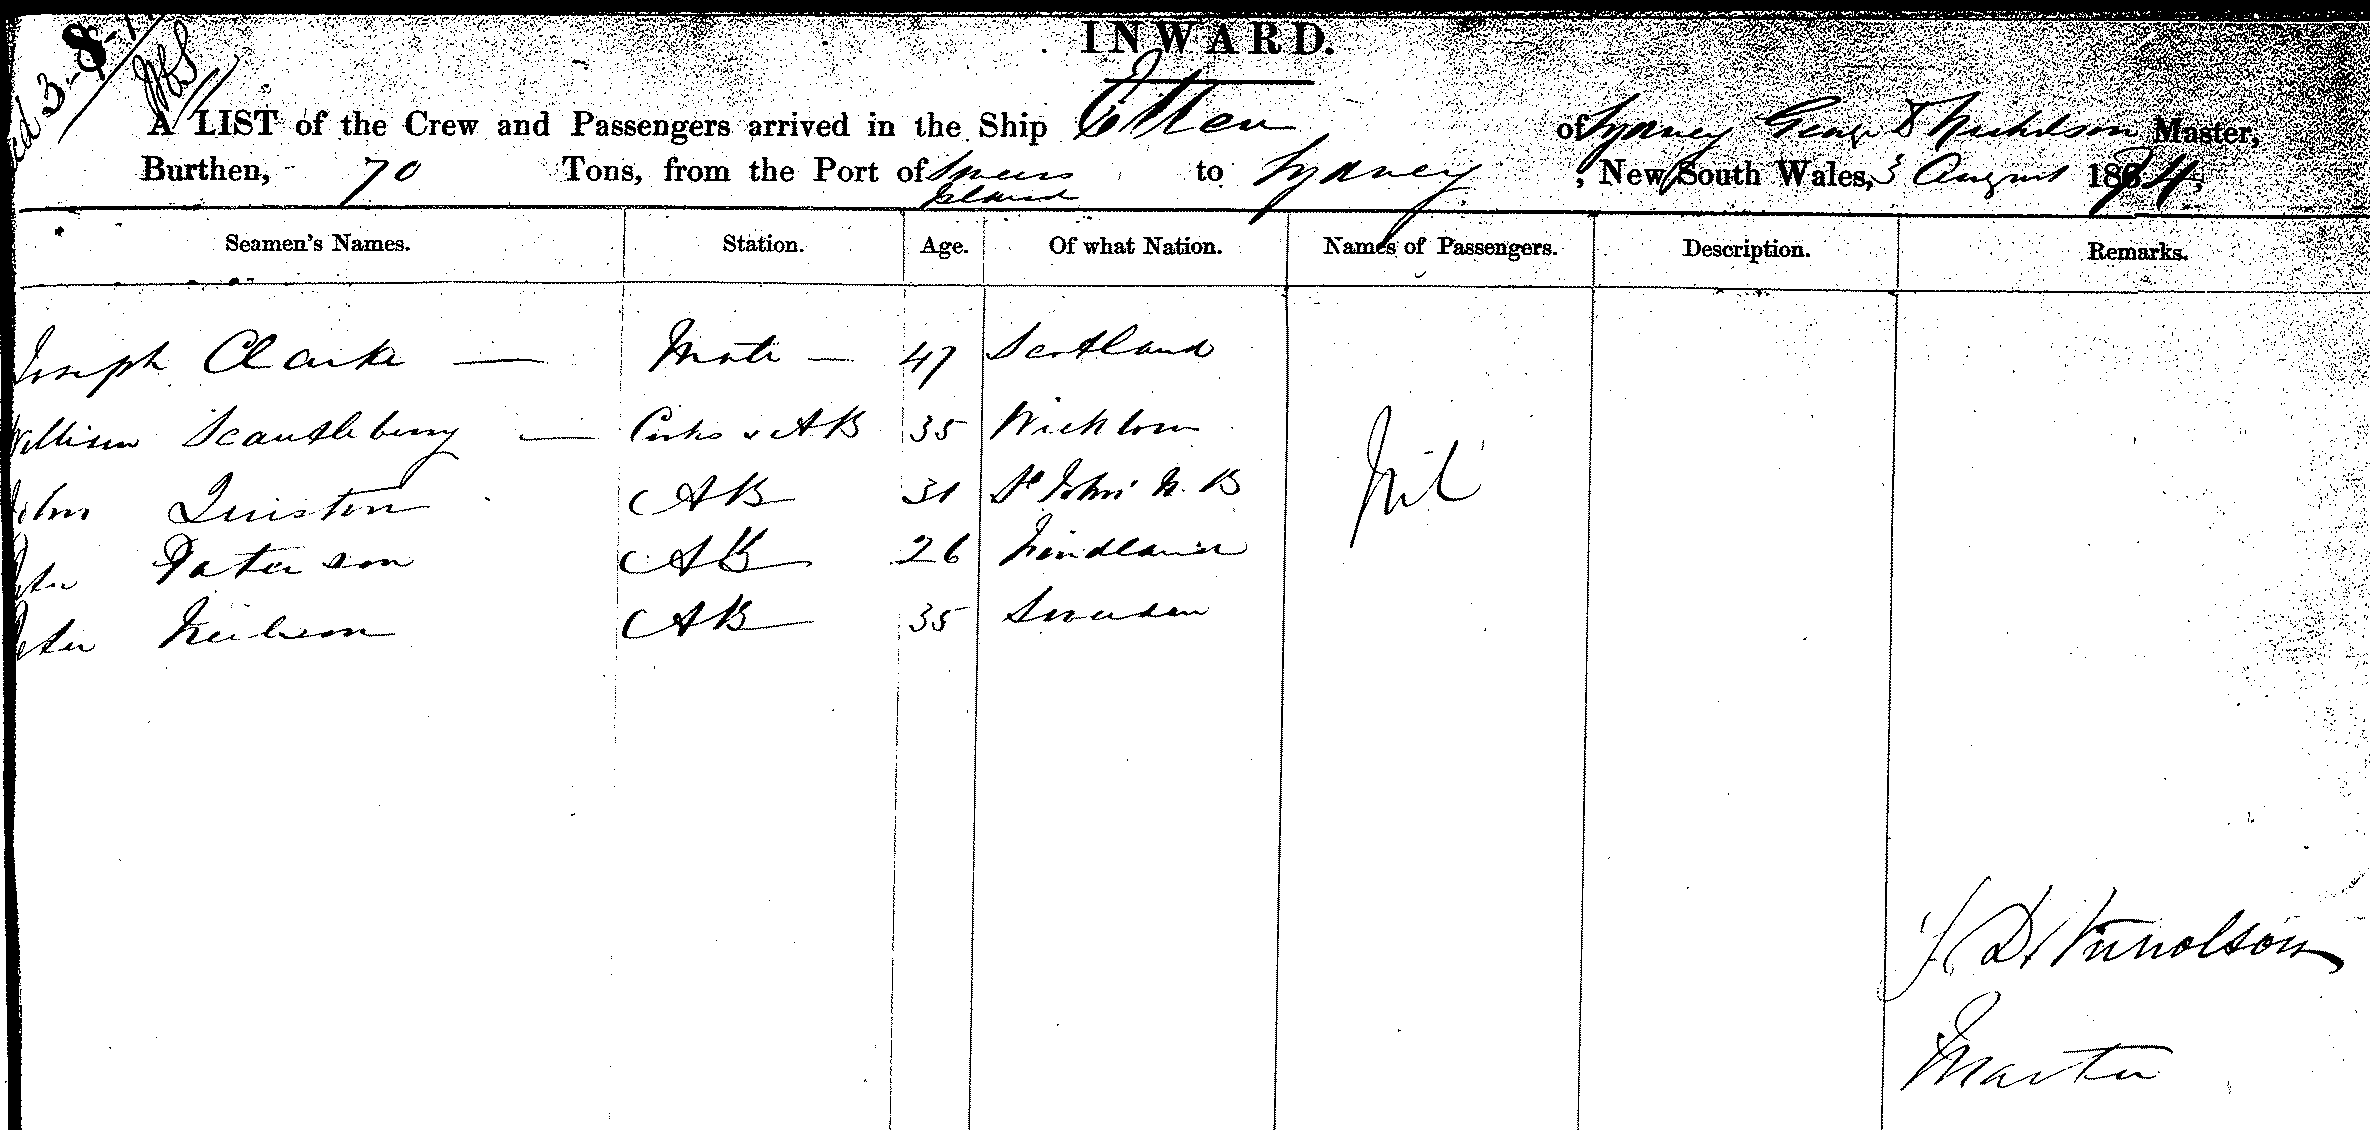 3-8-
INWARD.
A LIST of the Crew and Passengers arrived in the Ship Ellen of Sydney George D Nicholson Master,
Burthen, 70 Tons, from the Port of Island to Sydney, New South Wales, 3 August 1874,
Seamen's Names. Station. Age. Of what Nation. Names of Passengers. Description. Remarks.
Joseph Clarke — Mate — 47 Scotland
William Scantlebery — Cook & AB 35 Wicklow
John Quiston AB 31 St John N. B Nil
Peter Paterson AB 26 Findland
Peter Neilson AB 35 Sweeden
D Nicholson
Master